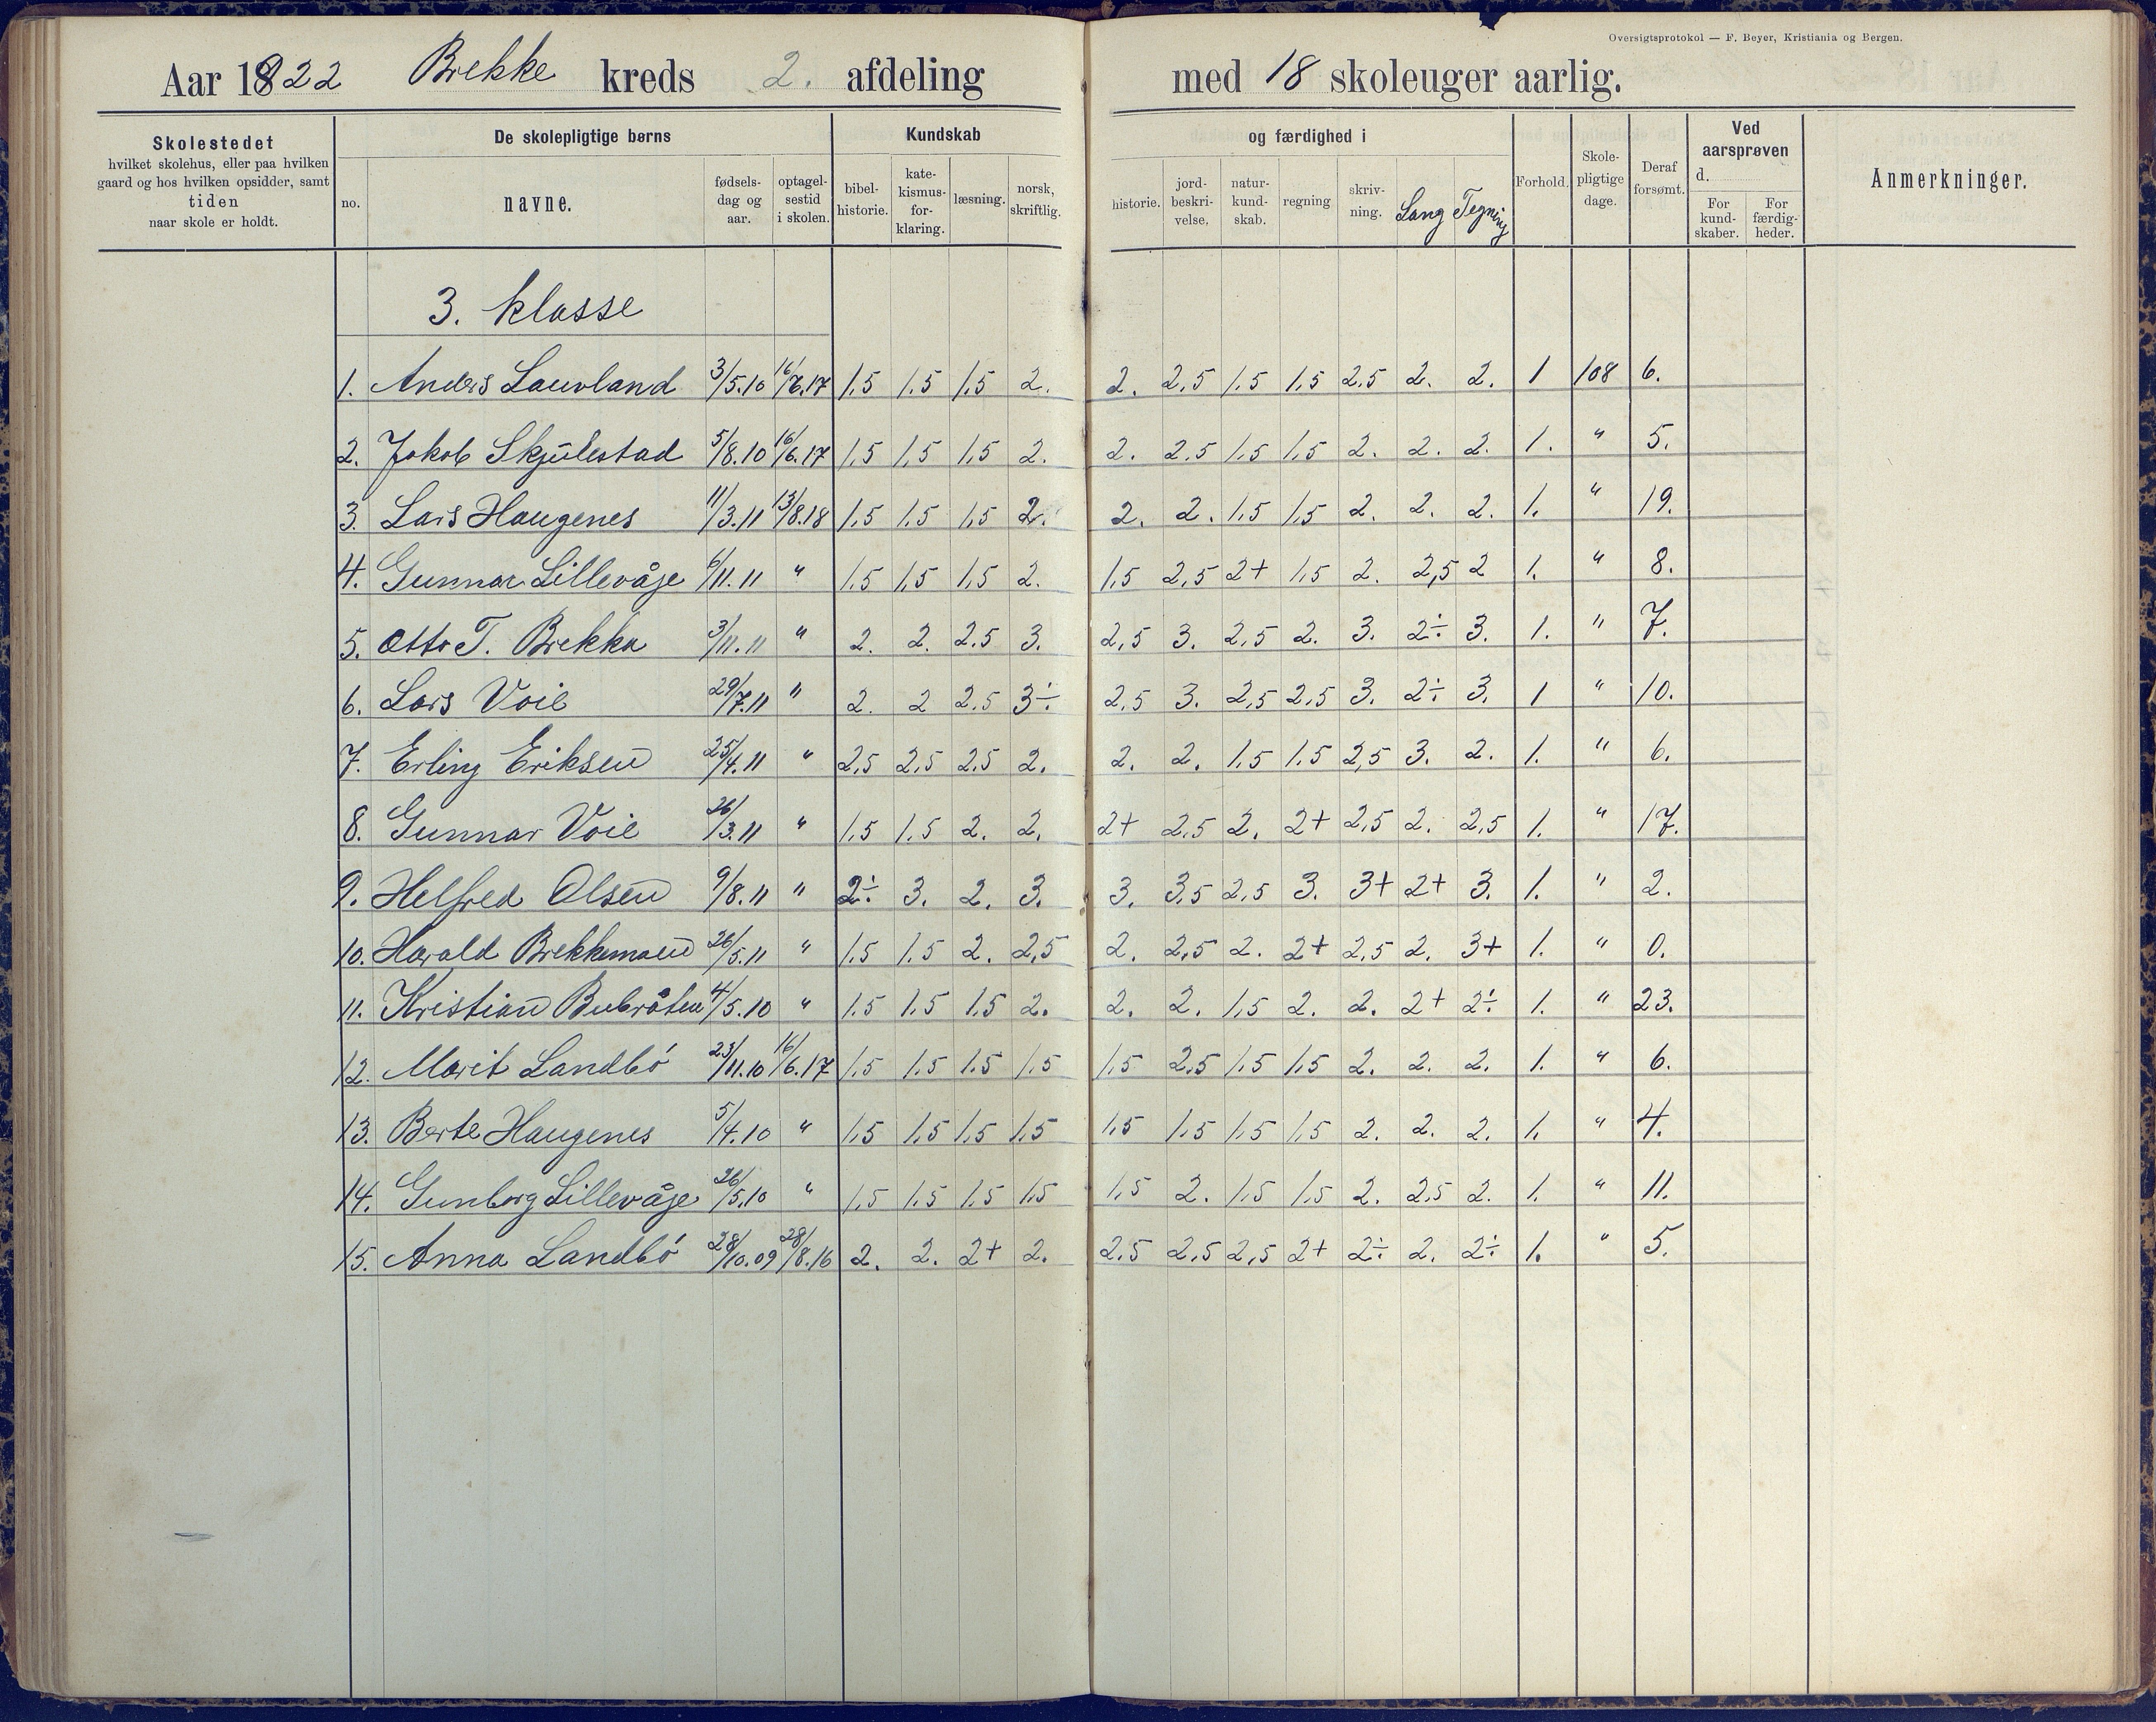 Oversigtsprotokol — F. Beyer, Kristiania og Bergen.
Aar 1922 Brekke kreds 2. afdeling med 18 skoleuger aarlig.
Skolestedet
hvilket skolehus, eller paa hvilken
gaard og hos hvilken opsidder, samt
tiden
naar skole er holdt.
De skolepligtige børns
no.
navne.
fødsels-
dag og
aar.
optagel-
sestid
i skolen.
Kundskab
bibel-
historie.
kate-
kismus-
for-
klaring.
læsning.
norsk,
skriftlig.
og færdighed i
historie.
jord-
beskri-
velse.
natur-
kund-
skab.
regning
skriv-
ning.
Sang
Tegning
Forhold.
Skole-
pligtige
dage.
Deraf
forsømt.
Ved
aarsprøven
d.
For
kund-
skaber.
For
færdig-
heder.
Anmerkninger.
3. klasse
1. Anders Lauvland 3/5.10 16/6.17 1.5 1.5 1.5 2. 2. 2,5 1.5 1.5 2.5 2. 2. 1 108 6.
2. Jakob Skjulestad 5/8.10 16/6.17 1.5 1.5 1.5 2. 2. 2.5 1.5 1.5 2. 2. 2. 1. " 5.
3. Lars Haugenes 11/3.11 13/8.18 1.5 1.5 1.5 2. 2. 2. 1.5 1.5 2. 2. 2. 1. " 19.
4. Gunnar Lillevåje 6/11.11 " 1.5 1.5 1.5 2. 1.5 2,5 2+ 1.5 2. 2,5 2 1. " 8.
5. Otto T. Brekka 3/11.11 " 2. 2. 2.5 3. 2,5 3. 2,5 2. 3. 2÷ 3. 1. " 7.
6. Lars Voie 29/7.11 " 2. 2 2.5 3÷ 2,5 3. 2,5 2,5 3. 2÷ 3. 1 " 10.
7. Erling Eriksen 25/4.11 " 2,5 2,5 2.5 2. 2. 2. 1.5 1.5 2,5 3. 2. 1. " 6.
8. Gunnar Voie 26/3.11 " 1.5 1.5 2. 2. 2+ 2,5 2. 2+ 2,5 2. 2,5 1. " 17.
9. Helfred Olsen 9/8.11 " 2÷ 3. 2. 3. 3. 3,5 2,5 3. 3+ 2+ 3. 1. " 2.
10. Harald Brekkemoen 26/5.11 " 1.5 1.5 2. 2,5 2. 2,5 2. 2+ 2,5 2. 3+ 1. " 0.
11. Kristian Bubråten 4/5.10 " 1.5 1.5 1.5 2. 2. 2. 1.5 2. 2. 2+ 2÷ 1. " 23.
12. Marit Landbó 23/11.10 16/6.17 1.5 1.5 1.5 1.5 1.5 2,5 1.5 1.5 2. 2. 2. 1. " 6.
13. Berte Haugenes 5/4.10 " 1.5 1.5 1.5 1.5 1.5 1.5 1.5 1.5 2. 2. 2. 1. " 4.
14. Gunborg Lillevåje 26/5.10 " 1.5 1.5 1.5 1.5 1.5 2. 1.5 1.5 2. 2.5 2. 1. " 11.
15. Anna Landbó 28/10.09 28/8.16 2. 2. 2+ 2. 2.5 2,5 2,5 2+ 2÷ 2. 2÷ 1. " 5.